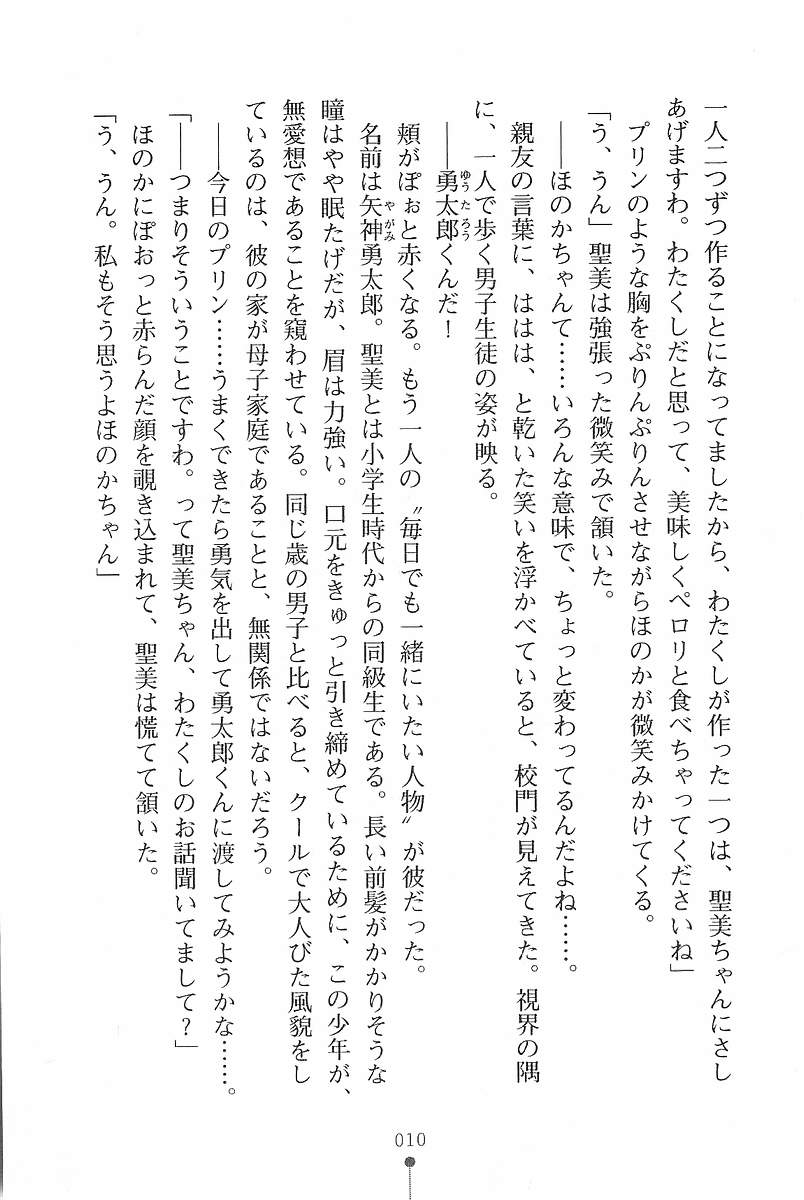 一人二つずつ作ることになってましたから、わたくしが作った一つは、聖美ちゃんにさし
あげますわ。わたくしだと思って、美味しくペロリと食べちゃってくださいね」
プリンのような胸をぷりんぷりんさせながらほのかが微笑みかけてくる。
「う、うん」聖美は強張った微笑みで頷いた。
――ほのかちゃんて……いろんな意味で、ちょっと変わってるんだよね……。
親友の言葉に、ははは、と乾いた笑いを浮かべていると、校門が見えてきた。視界の隅
に、一人で歩く男子生徒の姿が映る。
――勇太郎くんだ！
頬がぽぉと赤くなる。もう一人の〝毎日でも一緒にいたい人物〟が彼だった。
名前は矢神勇太郎。聖美とは小学生時代からの同級生である。長い前髪がかかりそうな
瞳はやや眠たげだが、眉は力強い。口元をきゅっと引き締めているために、この少年が、
無愛想であることを窺わせている。同じ歳の男子と比べると、クールで大人びた風貌をし
ているのは、彼の家が母子家庭であることと、無関係ではないだろう。
――今日のプリン……うまくできたら勇気を出して勇太郎くんに渡してみようかな……。
「――つまりそういうことですわ。って聖美ちゃん、わたくしのお話聞いてまして？」
ほのかにぽおっと赤らんだ顔を覗き込まれて、聖美は慌てて頷いた。
「う、うん。私もそう思うよほのかちゃん」
010